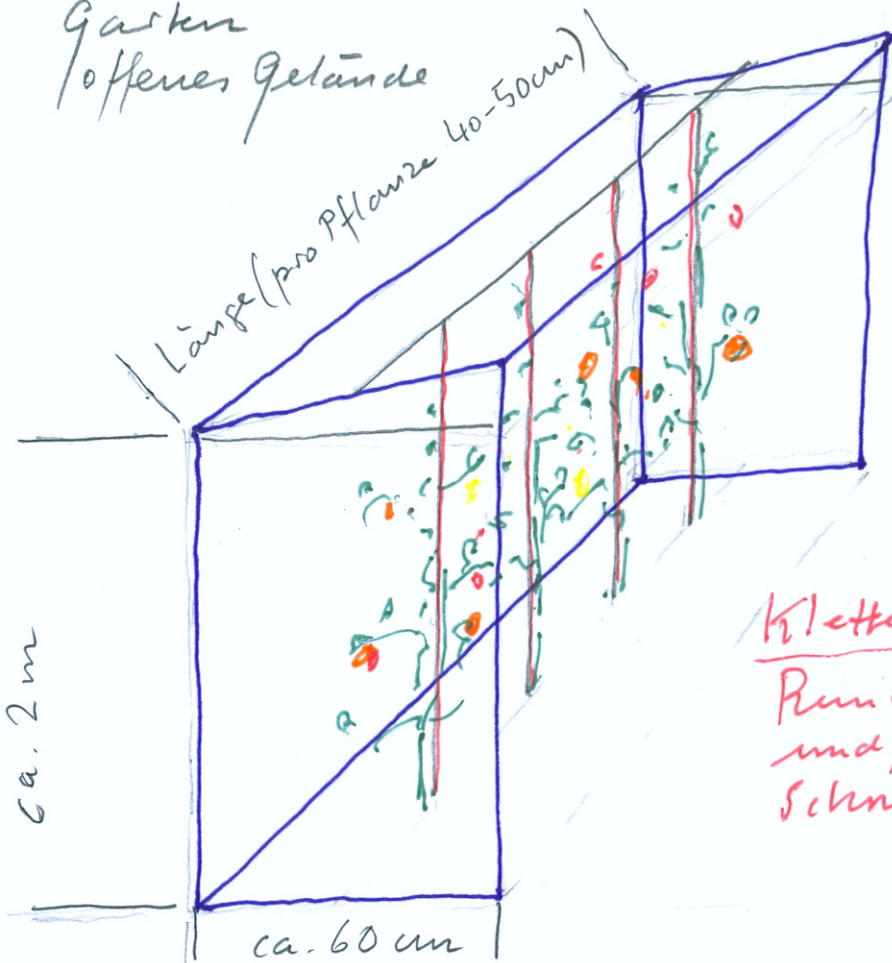 Garten
/offenes Gelände
Länge (pro Pflanze 40-50cm)
ca. 2 m
ca. 60 cm
Klette
und
Schn